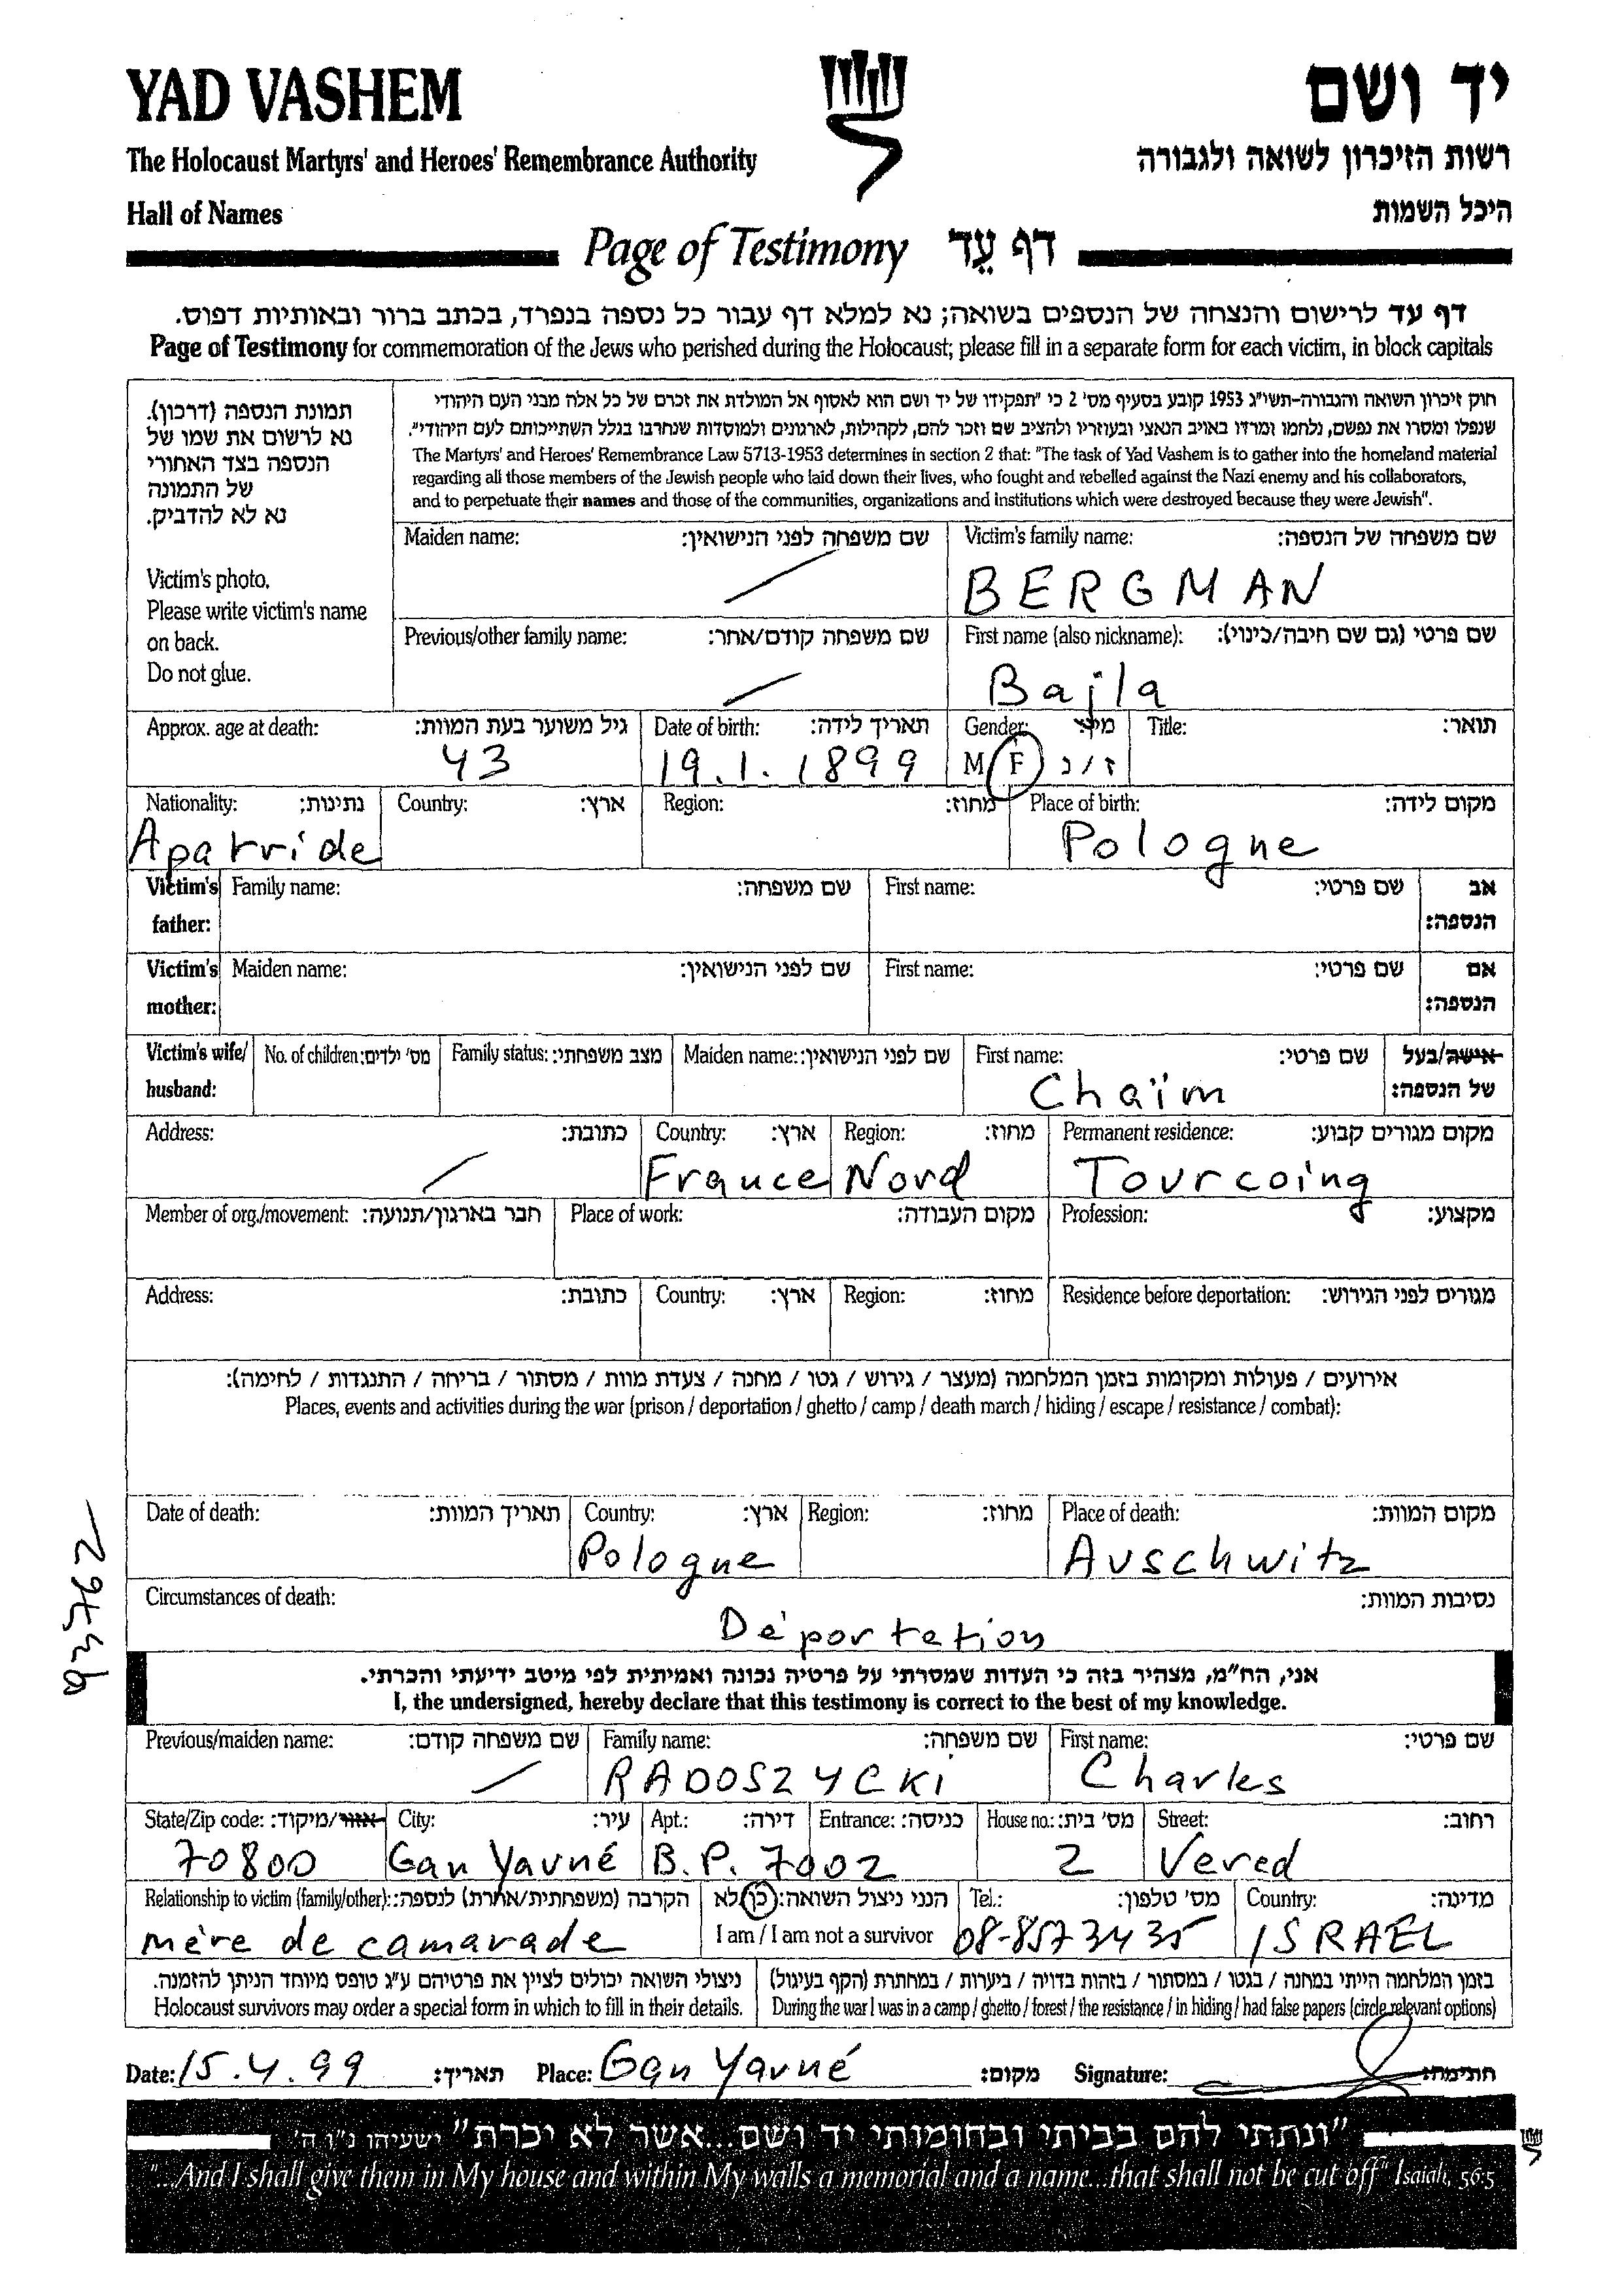 YAD VASHEM יד ושם
The Holocaust Martyrs' and Heroes' Remembrance Authority רשות הזיכרון לשואה ולגבורה
Hall of Names היכל השמות
Page of Testimony דף עֵד
דף עד לרישום והנצחה של הנספים בשואה; נא למלא דף עבור כל נספה בנפרד, בכתב ברור ובאותיות דפוס.
Page of Testimony for commemoration of the Jews who perished during the Holocaust; please fill in a separate form for each victim, in block capitals
תמונת הנספה (דרכון).
נא לרשום את שמו של
הנספה בצד האחורי
של התמונה
נא לא להדביק.
Victim's photo,
Please write victim's name
on back.
Do not glue.
חוק זיכרון השואה והגבורה-תשי"ג 1953 קובע בסעיף מס' 2 כי "תפקידו של יד ושם הוא לאסוף אל המולדת את זכרם של כל אלה מבני העם היהודי
שנפלו ומסרו את נפשם, נלחמו ומרדו באויב הנאצי ובעוזריו ולהציב שם וזכר להם, לקהילות, לארגונים ולמוסדות שנחרבו בגלל השתייכותם לעם היהודי".
The Martyrs' and Heroes' Remembrance Law 5713-1953 determines in section 2 that: "The task of Yad Vashem is to gather into the homeland material
regarding all those members of the Jewish people who laid down their lives, who fought and rebelled against the Nazi enemy and his collaborators,
and to perpetuate their names and those of the communities, organizations and institutions which were destroyed because they were Jewish".
Maiden name: שם משפחה לפני הנישואין: Victim's family name: שם משפחה של הנספה:
BERGMAN
Previous/other family name: שם משפחה קודם/אחר: First name (also nickname): שם פרטי (גם שם חיבה/כינוי):
Bajla
Approx. age at death: גיל משוער בעת המוות: Date of birth: תאריך לידה: Gender: מין: Title: תואר:
43 19.1.1899 M F ז/נ
Nationality: נתינות: Country: ארץ: Region: מחוז: Place of birth: מקום לידה:
Apatride Pologne
Victim's Family name: שם משפחה: First name: שם פרטי: אב
father: הנספה:
Victim's Maiden name: שם לפני הנישואין: First name: שם פרטי: אם
mother: הנספה:
Victim's wife/ No. of children: מס' ילדים: Family status: מצב משפחתי: Maiden name: שם לפני הנישואין: First name: שם פרטי: אישה/בעל
husband: Chaïm של הנספה:
Address: כתובת: Country: ארץ: Region: מחוז: Permanent residence: מקום מגורים קבוע:
France Nord Tourcoing
Member of org./movement: חבר בארגון/תנועה: Place of work: מקום העבודה: Profession: מקצוע:
Address: כתובת: Country: ארץ: Region: מחוז: Residence before deportation: מגורים לפני הגירוש:
אירועים / פעולות ומקומות בזמן המלחמה (מעצר / גירוש / גטו / מחנה / צעדת מוות / מסתור / בריחה / התנגדות / לחימה):
Places, events and activities during the war (prison / deportation / ghetto / camp / death march / hiding / escape / resistance / combat):
Date of death: תאריך המוות: Country: ארץ: Region: מחוז: Place of death: מקום המוות:
Pologne Auschwitz
Circumstances of death: נסיבות המוות:
Déportation
93762
אני, הח"מ, מצהיר בזה כי העדות שמסרתי על פרטיה נכונה ואמיתית לפי מיטב ידיעתי והכרתי.
I, the undersigned, hereby declare that this testimony is correct to the best of my knowledge.
Previous/maiden name: שם משפחה קודם: Family name: שם משפחה: First name: שם פרטי:
RADOSZYCKI Charles
State/Zip code: אזור/מיקוד: City: עיר: Apt.: דירה: Entrance: כניסה: House no.: מס' בית: Street: רחוב:
70800 Gan Yavné B.P. 7002 2 Vered
Relationship to victim (family/other): הקרבה (משפחתית/אחרת) לנספה: הנני ניצול השואה: כן/לא Tel.: מס' טלפון: Country: מדינה:
mère de camarade I am / I am not a survivor 08-8573435 ISRAEL
ניצולי השואה יכולים לציין את פרטיהם ע"ג טופס מיוחד הניתן להזמנה. בזמן המלחמה הייתי במחנה / בגטו / במסתור / בזהות בדויה / ביערות / במחתרת (הקף בעיגול)
Holocaust survivors may order a special form in which to fill in their details. During the war I was in a camp / ghetto / forest / the resistance / in hiding / had false papers (circle relevant options)
Date: 15.4.99 תאריך: Place: Gan Yavné מקום: Signature: חתימה:
"ונתתי להם בביתי ובחומותי יד ושם...אשר לא יכרת" ישעיהו נ"ו ה'
"...And I shall give them in My house and within My walls a memorial and a name...that shall not be cut off" Isaiah, 56:5